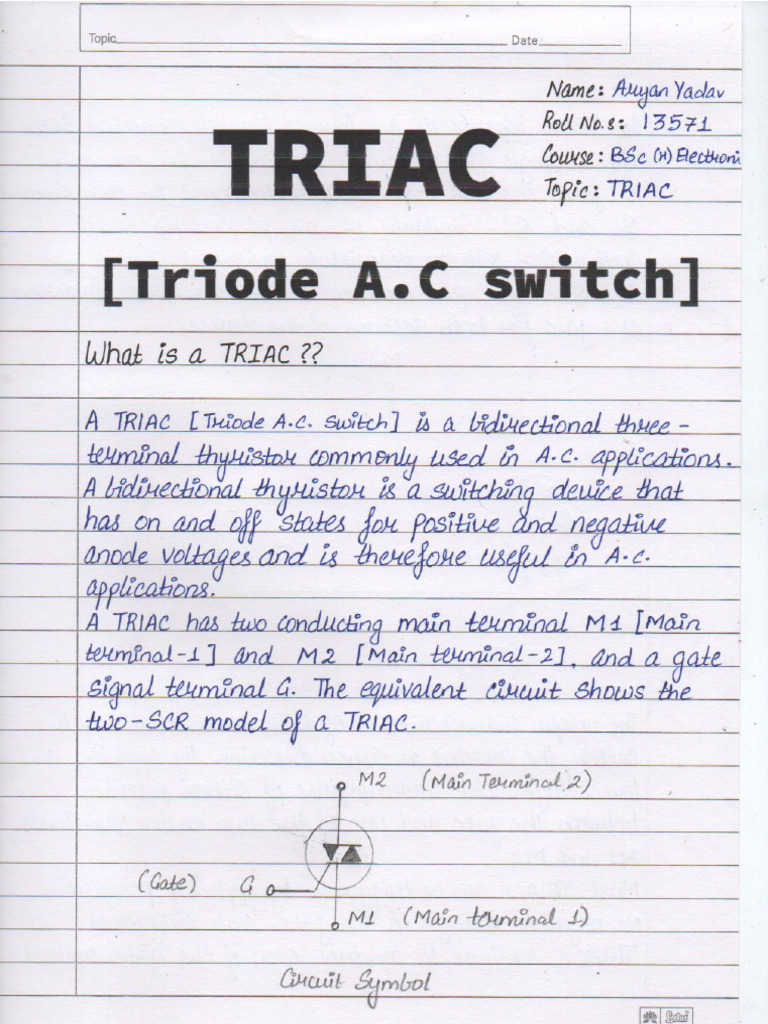 Topic Date
Name: Aryan Yadav
Roll No.s: 13571
Course: BSc (H) Electroni
Topic: TRIAC
TRIAC
[Triode A.C switch]
What is a TRIAC ??
A TRIAC [Triode A.C. switch] is a bidirectional three-
terminal thyristor commonly used in A.C. applications.
A bidirectional thyristor is a switching device that
has on and off states for positive and negative
anode voltages and is therefore useful in A.C.
applications.
A TRIAC has two conducting main terminal M1 [Main
terminal-1] and M2 [Main terminal-2], and a gate
signal terminal G. The equivalent circuit shows the
two-SCR model of a TRIAC.
M2 (Main Terminal 2)
(Gate) G
M1 (Main terminal 1)
Circuit Symbol
Lotus